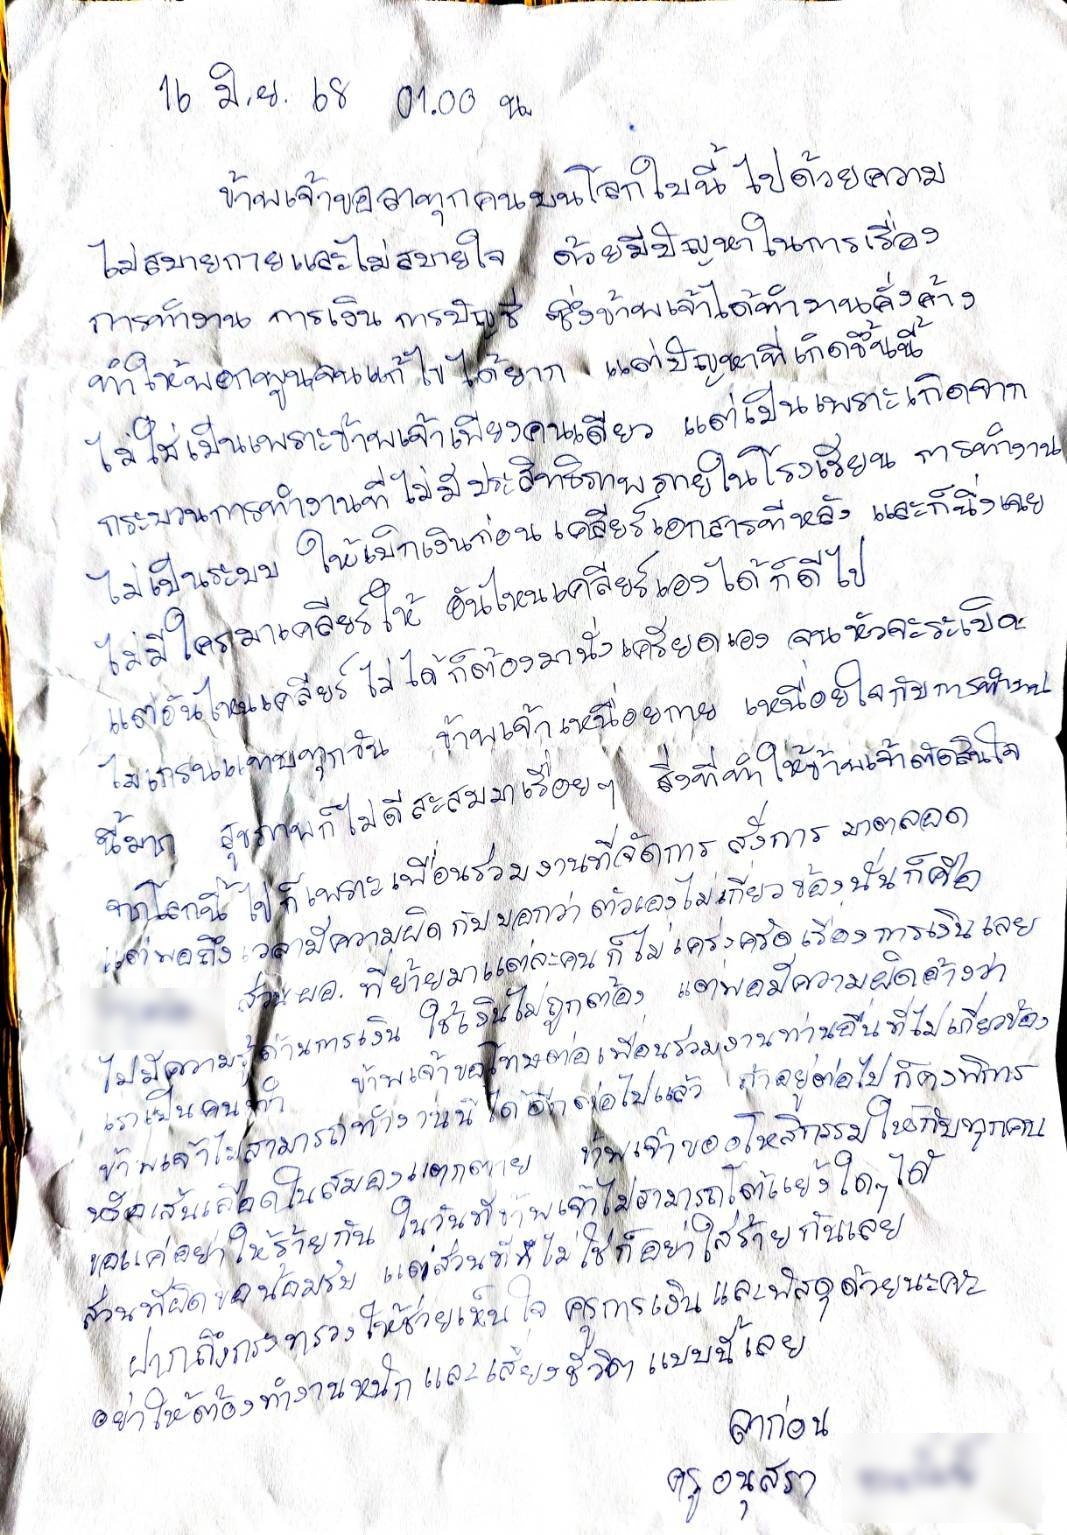 16 มิ.ย. 68 01.00 น.
ข้าพเจ้าขอลาทุกคนบนโลกใบนี้ ไปด้วยความ
ไม่สบายกายและไม่สบายใจ ด้วยมีปัญหาในการเรื่อง
การทำงาน การเงิน การบัญชี ซึ่งข้าพเจ้าได้ทำงานคั่งค้าง
ทำให้พอกพูนจนแก้ไขได้ยาก แต่ปัญหาที่เกิดขึ้นนี้
ไม่ใช่เป็นเพราะข้าพเจ้าเพียงคนเดียว แต่เป็นเพราะเกิดจาก
กระบวนการทำงานที่ไม่มีประสิทธิภาพภายในโรงเรียน การทำงาน
ไม่เป็นระบบ ให้เบิกเงินก่อน เคลียร์เอกสารทีหลัง และก็นิ่งเฉย
ไม่มีใครมาเคลียร์ให้ อันไหนเคลียร์เองได้ก็ดีไป
แต่อันไหนเคลียร์ไม่ได้ก็ต้องมานั่งเครียดเอง จนหัวจะระเบิด
ไมเกรนแทบทุกวัน ข้าพเจ้าเหนื่อยกาย เหนื่อยใจกับการทำงาน
นี้มาก สุขภาพก็ไม่ดีสะสมมาเรื่อยๆ สิ่งที่ทำให้ข้าพเจ้าตัดสินใจ
จากโลกนี้ไปก็เพราะเพื่อนร่วมงานที่จัดการ สั่งการ มาตลอด
แต่พอถึงเวลามีความผิดกับบอกว่าตัวเองไม่เกี่ยวข้องนั่นก็คือ
ส่วน ผอ. ที่ย้ายมาแต่ละคนก็ไม่เคร่งครัดเรื่องการเงินเลย
ไม่มีความรู้ด้านการเงิน ใช้เงินไม่ถูกต้อง แต่พอมีความผิดอ้างว่า
เราเป็นคนทำ ข้าพเจ้าขอโทษต่อเพื่อนร่วมงานท่านอื่นที่ไม่เกี่ยวข้อง
ข้าพเจ้าไม่สามารถทำงานนี้ได้อีกต่อไปแล้ว ถ้าอยู่ต่อไปก็คงพิการ
หรือเส้นเลือดในสมองแตกตาย ข้าพเจ้าขออโหสิกรรมให้กับทุกคน
ขอแค่อย่าให้ร้ายกัน ในวันที่ข้าพเจ้าไม่สามารถโต้แย้งใดๆได้
ส่วนที่ผิดขอน้อมรับ แต่ส่วนที่ไม่ใช่ก็อย่าใส่ร้ายกันเลย
ฝากถึงกระทรวงให้ช่วยเห็นใจ ครูการเงิน และพัสดุด้วยนะคะ
อย่าให้ต้องทำงานหนัก และเสี่ยงชีวิต แบบนี้เลย
ลาก่อน
ครู อนุสรา